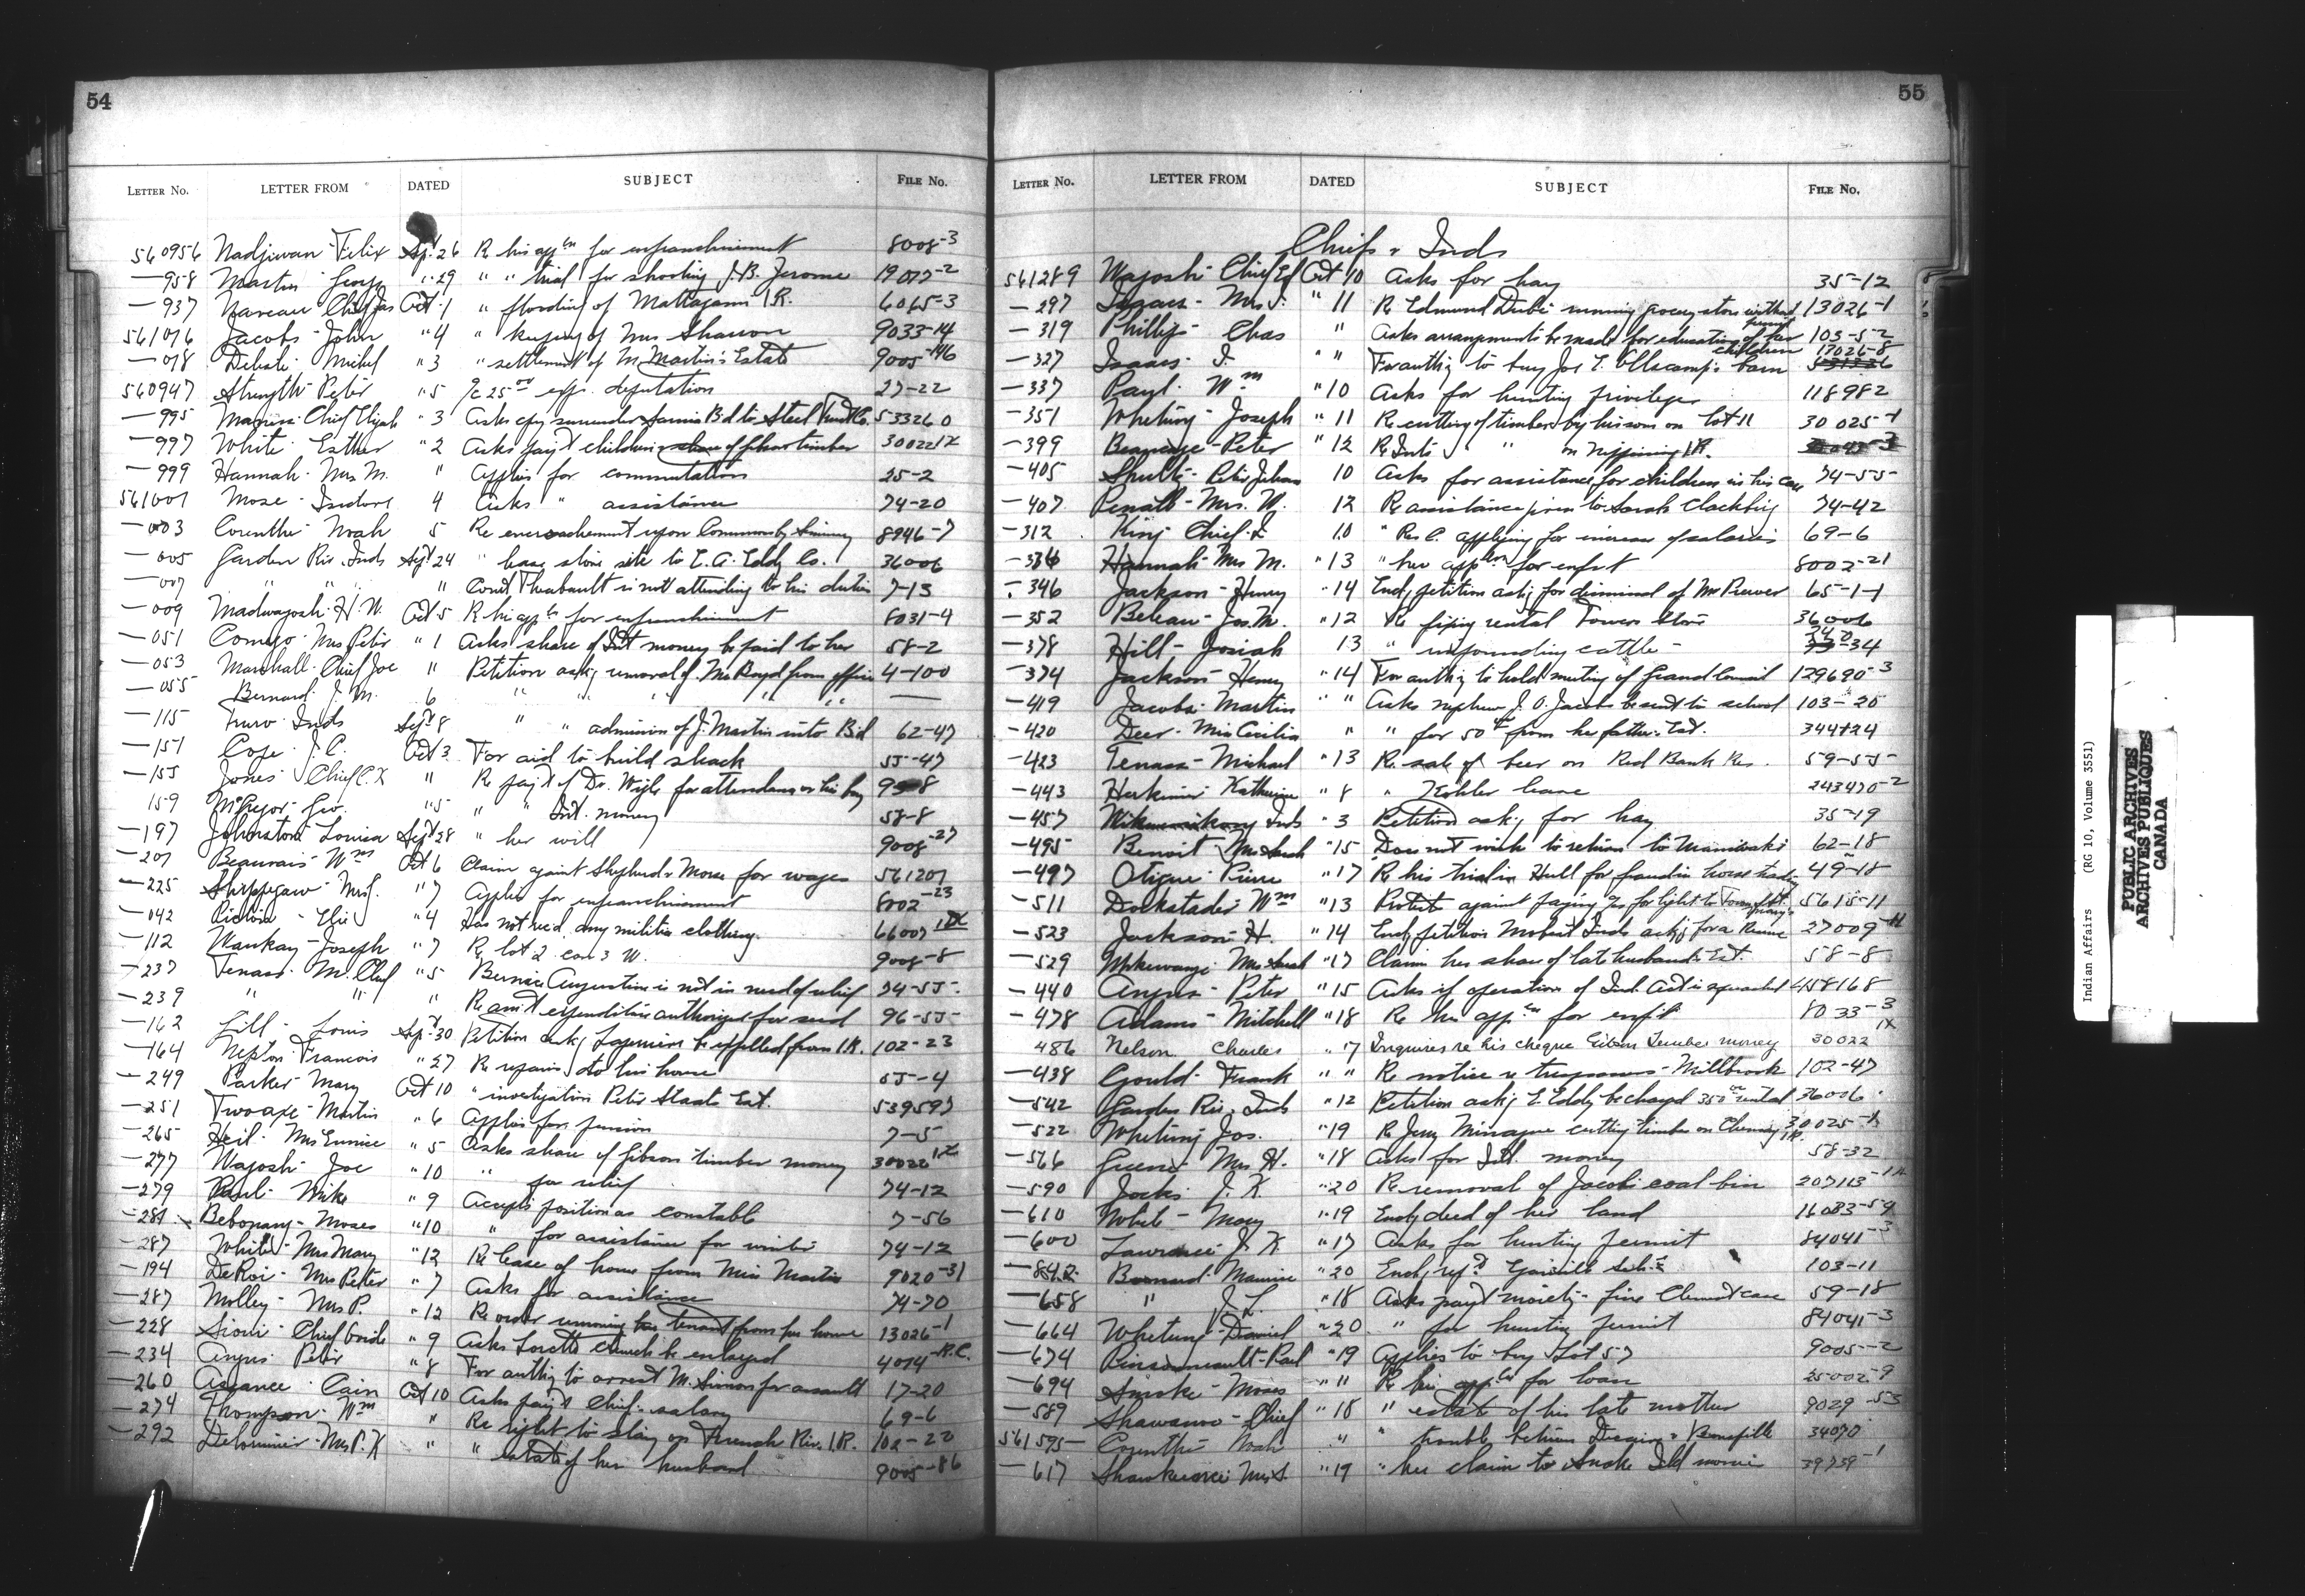 54
LETTER NO. LETTER FROM DATED SUBJECT FILE NO.
560956 Nadjiwan Felix Sept 26 Re his appn for enfranchisement 8008-3
—958 Martin George " 29 " " trial for shooting J.B. Jerome 19077-2
—937 Naveau Chief Jas Oct 1 " flooding of Mattagami I.R. 6065-3
561076 Jacobs John " 4 " keeping of Mrs Shannon 9033-14
—078 Michel " 3 " settlement of M. Martin's Estate 9005-146
560947 Strength Peter " 5 /c 25 00 exp. deputation 27-22
—995 Chief Elijah " 3 Asks copy surrender Sarnia Bd to Steel Co. 533260
—997 White Esther " 2 Asks payt children's share of Gibson timber 30022
—999 Hannah Mrs M. " Applies for commutation 25-2
561001 Mose Isidore 4 Asks " assistance 74-20
—003 Corinthe Noah 5 Re encroachment upon Common by 8946-7
—005 Garden Riv. Inds Sept 24 " lease store site to E.A. Eddy Co. 36006
—007 " " " " Const Theabault is not attending to his duties 7-13
—009 Madwayosh H.W. Oct 5 Re his appn for enfranchisement 8031-4
—051 Comego Mrs Peter " 1 Asks share of Int money be paid to her 58-2
—053 Marshall Chief Joe " Petition askg removal of Mr Boyd from office 4-100
—055 Bernard J.M. 6 " " " " " " —
—115 Truro Inds Sept 8 " " admission of J. Martin into Bd 62-47
—151 Cope J.C. Oct 3 For aid to build shack 55-47
—155 Jones Chief C.K " Re payt of Dr. Wigle for attendance on his boy
159 McGregor Geo. " 5 " " Int. money 58-8
—197 Johnston Louisa Sept 28 " her will 9008-27
—201 Beauvais Wm Oct 6 Claim against Shepherd & Morse for wages 561201
—225 Shippegaw Mrs J. " 7 Applies for enfranchisement 8002-23
—042 Picivia Eli " 4 Has not rec'd any militia clothing. 66007
—112 Waukay Joseph " 7 Re lot 2 con 3 W. 9008-8
—237 Tenass M. Chief " 5 Bernice Augustine is not in need of relief 74-55
—239 " " " Re amt expenditure authorized for seed 96-55
—162 Gill Louis Sept 30 Petition askg be expelled from I.R. 102-23
—164 Nepton Francois " 27 Re repairs to his house 55-4
—249 Parker Mary Oct 10 " investigation Peter Staats Est. 539597
—251 Twoaxe Martin " 6 Applies for pension 7-5
—265 Heil Mrs Eunice " 5 Asks share of Gibson timber money 30022
—277 Wajoshk Joe " 10 " for relief 74-12
—279 Paul Mike " 9 Accepts position as constable 7-56
—281 Bebonang Moses " 10 " for assistance for winter 74-12
—287 White Mrs Mary " 12 Re lease of house from Miss Martin 9020-31
—194 DeRoi Mrs Peter " 7 Asks for assistance 74-70
—287 Molley Mrs P. " 12 Re order removing her tenant from her house 13026-1
—228 Sioui Chief " 9 Asks Lorette church be enlarged 4074-R.C.
—234 Angus Peter " 8 For authty to arrest M. Simon for assault 17-20
—260 Assance Cain Oct 10 Asks payt Chief's salary 69-6
—274 Thompson Wm " Re right to stay on French Riv. I.R. 102-22
—292 Delormier Mrs P.K " " estate of her husband 9005-86
55
LETTER NO. LETTER FROM DATED SUBJECT FILE NO.
Chiefs & Inds
561289 Wajoshk Chief Ed Oct 10 Asks for hay 35-12
—297 Isaacs Mrs J. " 11 Re Edmund Dubé running grocery store without permit 13026-1
—319 Phillips Chas " Asks arrangements be made for education of her children 103-5-2
—327 Isaacs J. " " For authty to buy Joe barn 17026-8
—337 Paul Wm " 10 Asks for hunting privileges 118982
—351 Whetung Joseph " 11 Re cutting of timber by his son on lot 11 30025-1
—399 Beaucage Peter " 12 Re Inds " " on Nipissing I.R.
—405 Shultz Peter Johnson 10 Asks for assistance for children in his care 74-55
—407 Penall Mrs. W. 12 Re assistance given to Sarah 74-42
—312 King Chief 10 " R.C. applying for increase of salaries 69-6
—336 Hannah Mrs M. " 13 " her appn for enfrt 8002-21
—346 Jackson Henry " 14 Encg petition askg for dismissal of Mr 65-1-1
—352 Beleau Jos. M. " 12 Re fixing rental Towers Store 36006
—378 Hill Josiah 13 " impounding cattle -34
—374 Jackson Henry " 14 For authty to hold meeting of Grand Council 129690-3
—419 Jacobs Martin " " Asks nephew J.O. Jacobs be sent to school 103-20
—420 Deer Miss Cecilia " " for 50 00 from her father's Est. 344424
—423 Tenass Michael " 13 Re sale of beer on Red Bank Res. 59-55
—443 Herkimer Katherine " 8 " Kohler lease 243470-2
—457 Wikwemikong Inds " 3 Petition askg for hay 35-19
—495 Benoit Mrs Sarah " 15 Does not wish to return to Maniwaki 62-18
—497 Otique Pierre " 17 Re his trial in Hull for fraud in horse trading 49-18
—511 Dockstader Wm " 13 Protests against paying 5615-11
—523 Jackson H. " 14 Encg petition Inds askg for a 27009
—529 Mrs Sarah " 17 Claims her share of late husband's Est. 58-8
—440 Angus Peter " 15 Asks if operation of Ind. Act is suspended 458168
—478 Adams Mitchell " 18 Re his appn for enfrt 8033-3
486 Nelson Charles " 17 Inquires re his cheque Gibson Timber money 30022 IX
—438 Gould Frank " " Re notice re trespassers - Millbrook 102-47
—542 Garden Riv. Inds " 12 Petition askg E. Eddy be charged 350 00 rental 36006
—522 Whetung Jos. " 19 Re Jerry cutting timber on Chemong I.R. 30025
—566 Greene Mrs H. " 18 Asks for Int. money 58-32
—590 Jocks J.K. " 20 Re removal of Jacobs coal bin 207113
—610 White Mary " 19 Encg deed of her land 16083-59
—600 Lawrence J.K. " 17 Asks for hunting permit 84041-3
—642 Bernard Maurice " 20 103-11
—658 " J.L. " 18 Asks payt moiety fine case 59-18
—664 Whetung Daniel " 20 " for hunting permit 84041-3
—674 Pinsonneault Paul " 19 Applies to buy Lot 57 9005-2
—694 Smoke Moses " " Re his appn for loan 25002-9
—589 Shawanoo Chief " 18 " estate of his late mother 9029-53
561595 Corinthe Noah " " trouble between & 34070
—617 Mrs S. " 19 " her claim to Snake Isld monies 39739-1
Indian Affairs (RG 10, Volume 3551)
PUBLIC ARCHIVES
ARCHIVES PUBLIQUES
CANADA